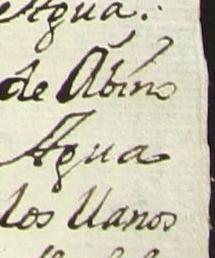 Agua.
de Abin
Agua
los llanos